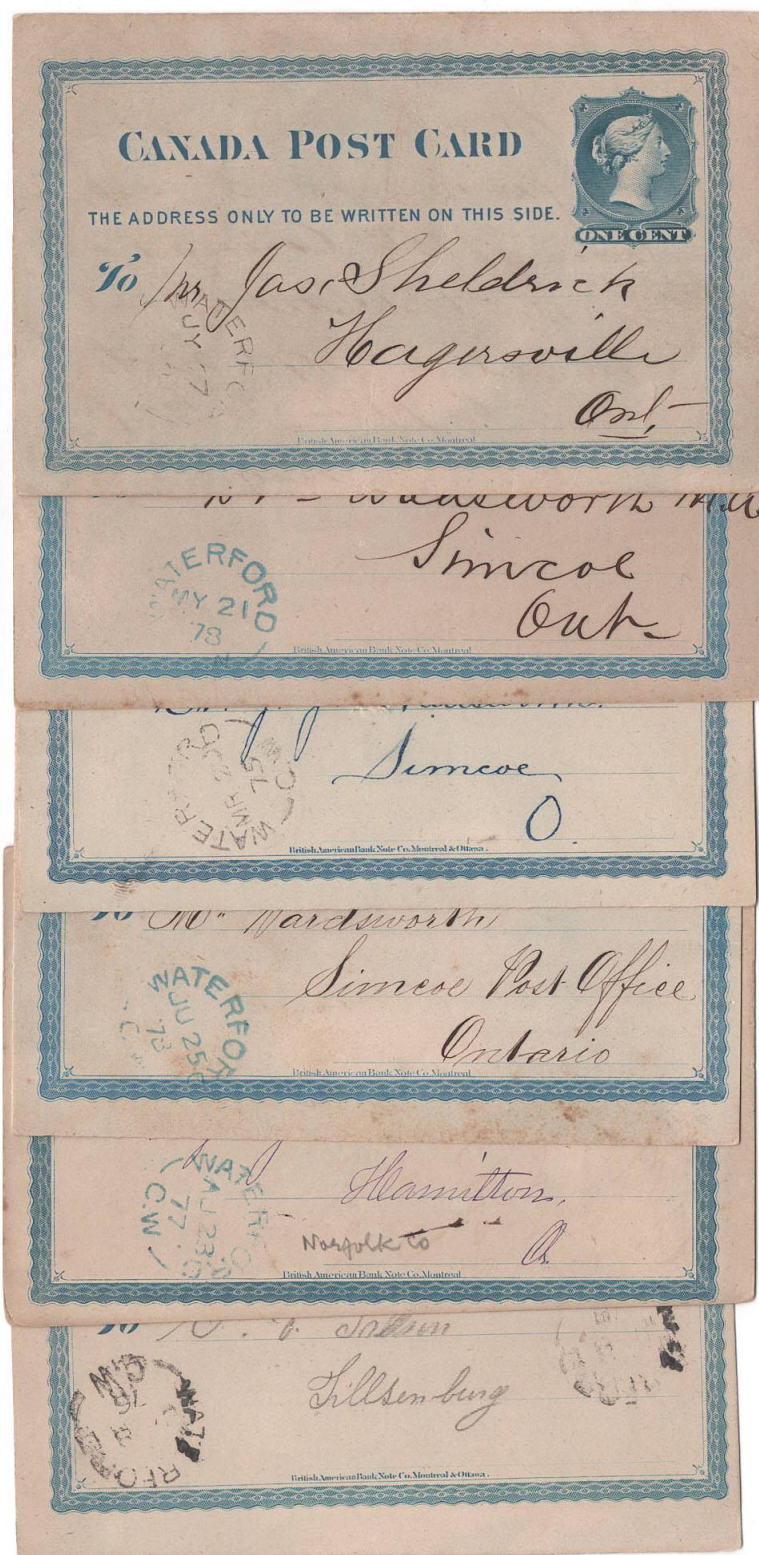 CANADA POST CARD
THE ADDRESS ONLY TO BE WRITTEN ON THIS SIDE.
ONE CENT
To Mr Jas. Sheldrick
Hagersville
Ont.
WATERFOR
JY 17
British American Bank Note Co. Montreal
Wadsworth
Simcoe
Ont
WATERFORD
MY 21
78
British American Bank Note Co. Montreal
Simcoe
O.
WATERFORD
MR
75
C.W
British American Bank Note Co. Montreal & Ottawa.
To Mr Wardsworth
Simcoe Post Office
Ontario
WATERFOR
JU 25
78
C.W
British American Bank Note Co. Montreal
Hamilton,
O.
Norfolk Co
WATERFOR
AU 23
77
C.W
British American Bank Note Co. Montreal
To
Tillsenburg
WATERFORD
76
C.W
British American Bank Note Co. Montreal & Ottawa.